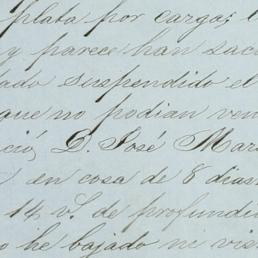 plata por carga; l
y parece han sac
ado suspendido el
que no podian ven
ció, D. José Mar
en cosa de 8 dias
14 v.s de profundi
o he bajado ni vis